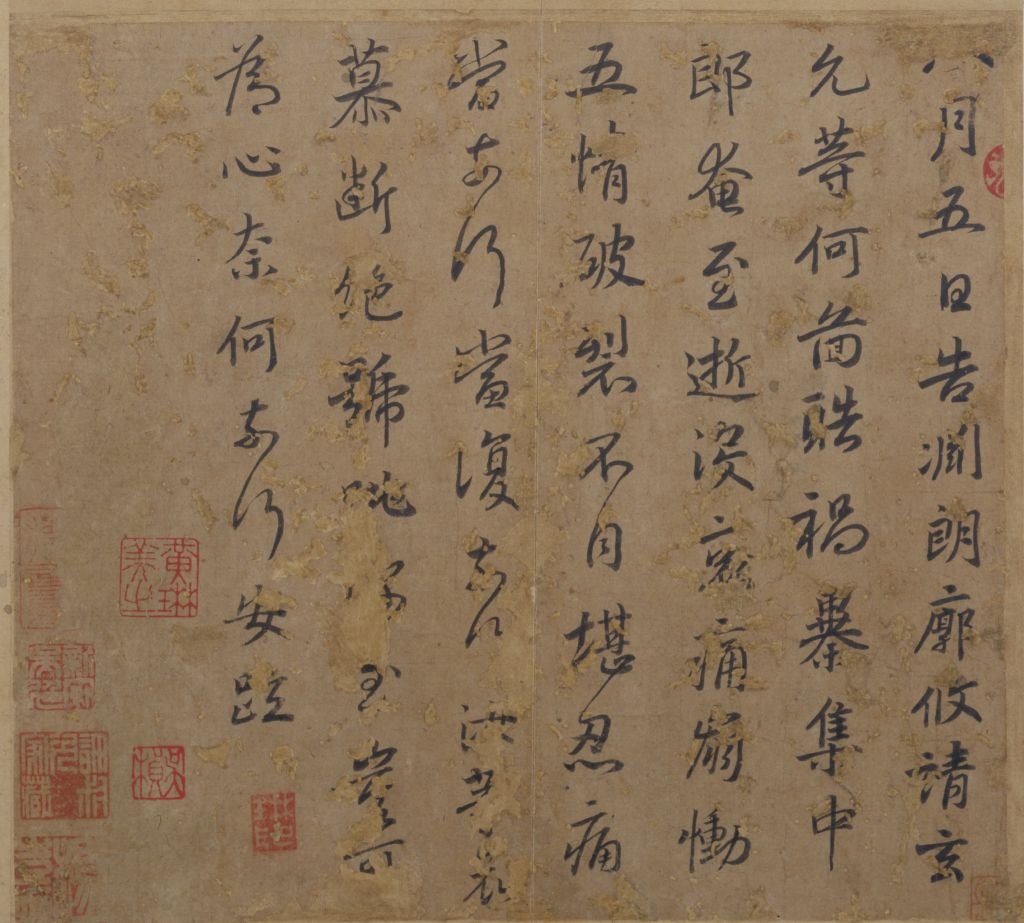 八月五日告淵朗廓攸靖玄
允等何圖酷禍暴集中
郎奄至逝沒哀痛崩慟
五情破裂不自堪忍痛
當奈何當復奈何汝等哀
慕斷絕號咷深至豈可
為心奈何奈何安疏
黃琳
美之
吳楨